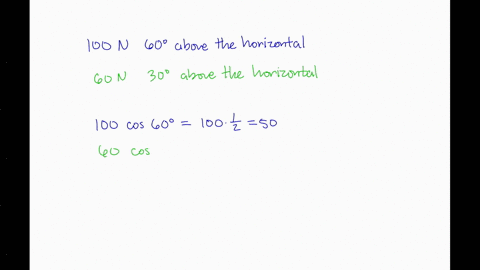 100 N 60° above the horizontal
60 N 30° above the horizontal
100 cos 60° = 100 · 1/2 = 50
60 cos